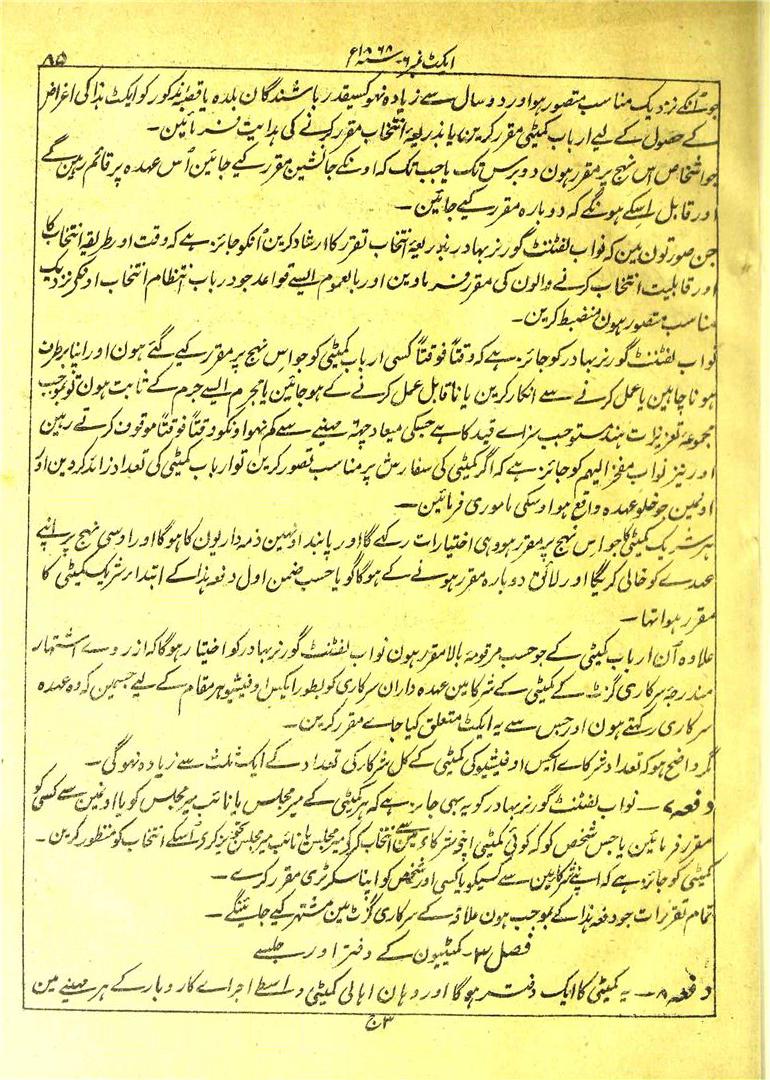 ایکٹ نمبر ۶ سنہ ۱۸۶۸ع
۸۵
جو اُنکے نزدیک مناسب متصور ہو اور دو سال سے زیادہ نہو کسیقدر باشندگان بلدہ یا قصبہ مذکور کو ایکٹ ہذا کی اغراض
کے حصول کے لیے ارباب کمیٹی مقرر کرین یا بذریعۂ انتخاب مقرر کرنے کی ہدایت فرمائین۔
جو اشخاص اس نہج پر مقرر ہون دو برس تک یا جب تک کہ اونکے جانشین مقرر کیے جائین اُس عہدہ پر قائم رہین گے
اور قابل اسکے ہونگے کہ دوبارہ مقرر کیے جائین۔
جن صورتون مین کہ نواب لفٹننٹ گورنر بہادر بذریعۂ انتخاب تقرر کا ارشاد کرین اُنکو جائز ہے کہ وقت اور طریقہ انتخاب کا
اور قابلیت انتخاب کرنے والون کی مقرر فرماوین اور بالعموم ایسے قواعد جو در باب انتظام انتخاب اونکے نزدیک
مناسب متصور ہون منضبط کرین۔
نواب لفٹننٹ گورنر بہادر کو جائز ہے کہ وقتاً فوقتاً کسی ارباب کمیٹی کو جو اس نہج پر مقرر کیے گئے ہون اور اپنا برطرف
ہونا چاہین یا عمل کرنے سے انکار کرین یا ناقابل عمل کرنے کے ہو جائین یا مجرم ایسے جرم کے ثابت ہون تو بموجب
مجموعۂ تعزیرات ہند مستوجب سزاے قید کا ہے جسکی میعاد چھہ ۶ مہینے سے کم نہو اونکو وقتاً فوقتاً موقوف کرتے رہین
اور نیز نواب مفخر الیہم کو جائز ہے کہ اگر کمیٹی کی سفارش پر مناسب تصور کرین تو ارباب کمیٹی کی تعداد زائد کر دین اور
اونمین جو خلو عہدہ واقع ہو اوسکی ماموری فرمائین۔
ہر شریک کمیٹی کا جو اس نہج پر مقرر ہو وہی اختیارات رکھے گا اور پابند اونہین ذمہ داریون کا ہوگا اور اوسی نہج پر اپنے
عہدے کو خالی کریگا اور لائق دوبارہ مقرر ہونے کے ہوگا گویا حسب ضمن اول دفعہ ہذا کے ابتداءً شریک کمیٹی کا
مقرر ہوا تہا۔
علاوہ اُن ارباب کمیٹی کے جو حسب مرقومۂ بالا مقرر ہون نواب لفٹننٹ گورنر بہادر کو اختیار ہوگا کہ از روے اشتہار
مندرجۂ سرکاری گزٹ کے کمیٹی کے شرکا مین عہدہ داران سرکاری کو بطور ایکس اوفیشیو ہر مقام کے لیے جسمین کہ وہ عہدہ
سرکاری رکھتے ہون اور جس سے یہ ایکٹ متعلق کیا جاے مقرر کرین۔
مگر واضح ہو کہ تعداد شرکاے ایکس اوفیشیو کی کمیٹی کے کل شرکار کی تعداد کے ایک ثلث سے زیادہ نہوگی۔
دفعہ ۷ ۔ نواب لفٹننٹ گورنر بہادر کو یہ بھی جائز ہے کہ ہر کمیٹی کے میر مجلس یا نائب میر مجلس کو یا اونمین سے کسی کو
مقرر فرمائین یا جس شخص کو کہ کوئی کمیٹی اپنے شرکاء مین سے انتخاب کر کے میر مجلس یا نائب میر مجلس تجویز کرے اُسکے انتخاب کو منظور کرین۔
کمیٹی کو جائز ہے کہ اپنے شرکا مین سے کسیکو یا کسی اور شخص کو اپنا سکرٹری مقرر کرے۔
تمام تقررات جو دفعہ ہذا کے بموجب ہون علاقہ کے سرکاری گزٹ مین مشتہر کیے جائینگے۔
فصل ۳۔ کمیٹیون کے دفتر اور جلسے
دفعہ ۸ ۔ یہ کمیٹی کا ایک دفتر ہوگا اور وہان اہالی کمیٹی واسطے اجراے کاروبار کے ہر مہینے مین
۳ ج